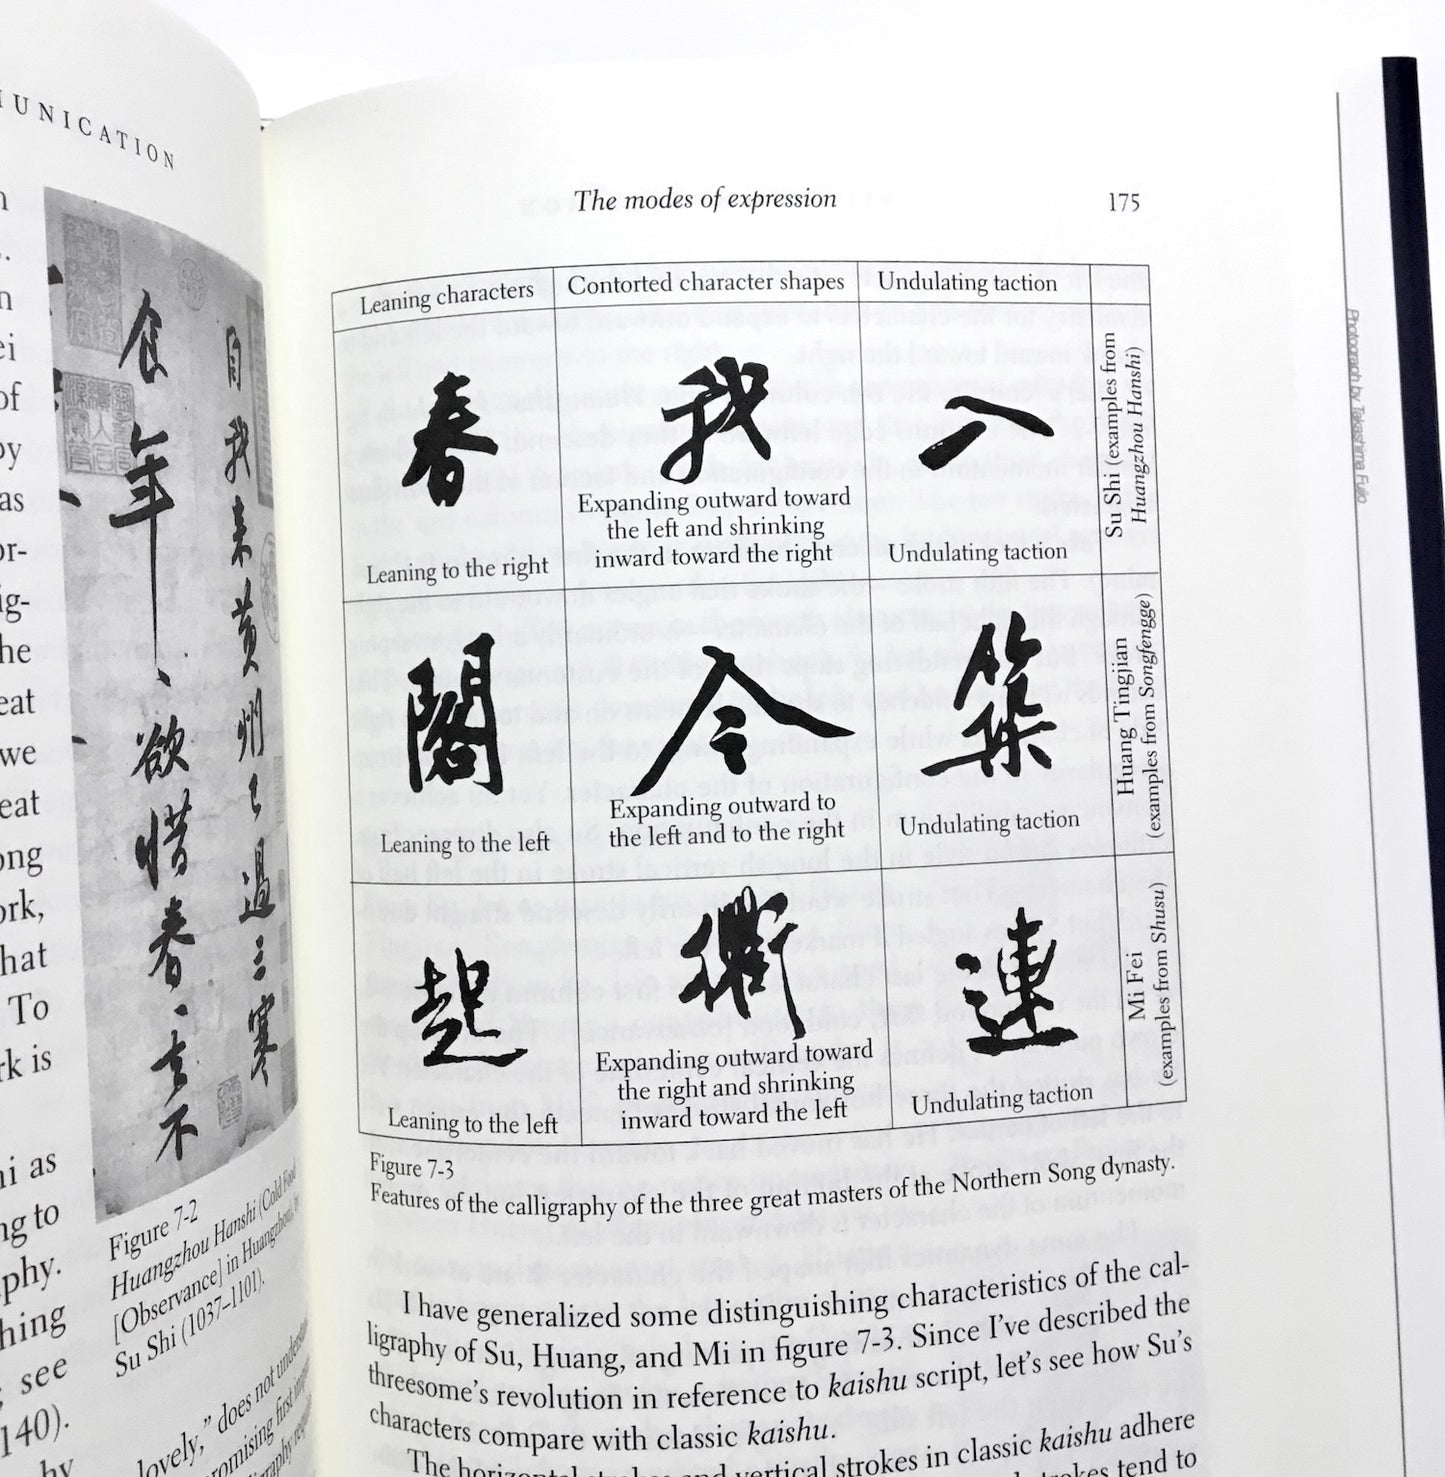 UNICATION
食
年
、
欲
惜
春
、
去
不
自
我
來
黄
州
已
過
三
寒
Figure 7-2
Huangzhou Hanshi (Cold Food
[Observance] in Huangzhou), by
Su Shi (1037–1101).
of
as
he
eat
we
eat
ong
ork,
hat
To
rk is
ai as
ng to
phy.
hing
see
140).
lovely,” does not
The modes of expression
175
Leaning characters
Contorted character shapes
Undulating taction
春
我
入
Leaning to the right
Expanding outward toward
the left and shrinking
inward toward the right
Undulating taction
Su Shi (examples from
Huangzhou Hanshi)
閣
令
築
Leaning to the left
Expanding outward to
the left and to the right
Undulating taction
Huang Tingjian
(examples from Songfengge)
起
衝
連
Leaning to the left
Expanding outward toward
the right and shrinking
inward toward the left
Undulating taction
Mi Fei
(examples from Shusu)
Figure 7-3
Features of the calligraphy of the three great masters of the Northern Song dynasty.
I have generalized some distinguishing characteristics of the cal-
ligraphy of Su, Huang, and Mi in figure 7-3. Since I’ve described the
threesome’s revolution in reference to kaishu script, let’s see how Su’s
characters compare with classic kaishu.
The horizontal strokes and vertical strokes in classic kaishu adhere
strokes tend to
Photograph by Takashima Fujio